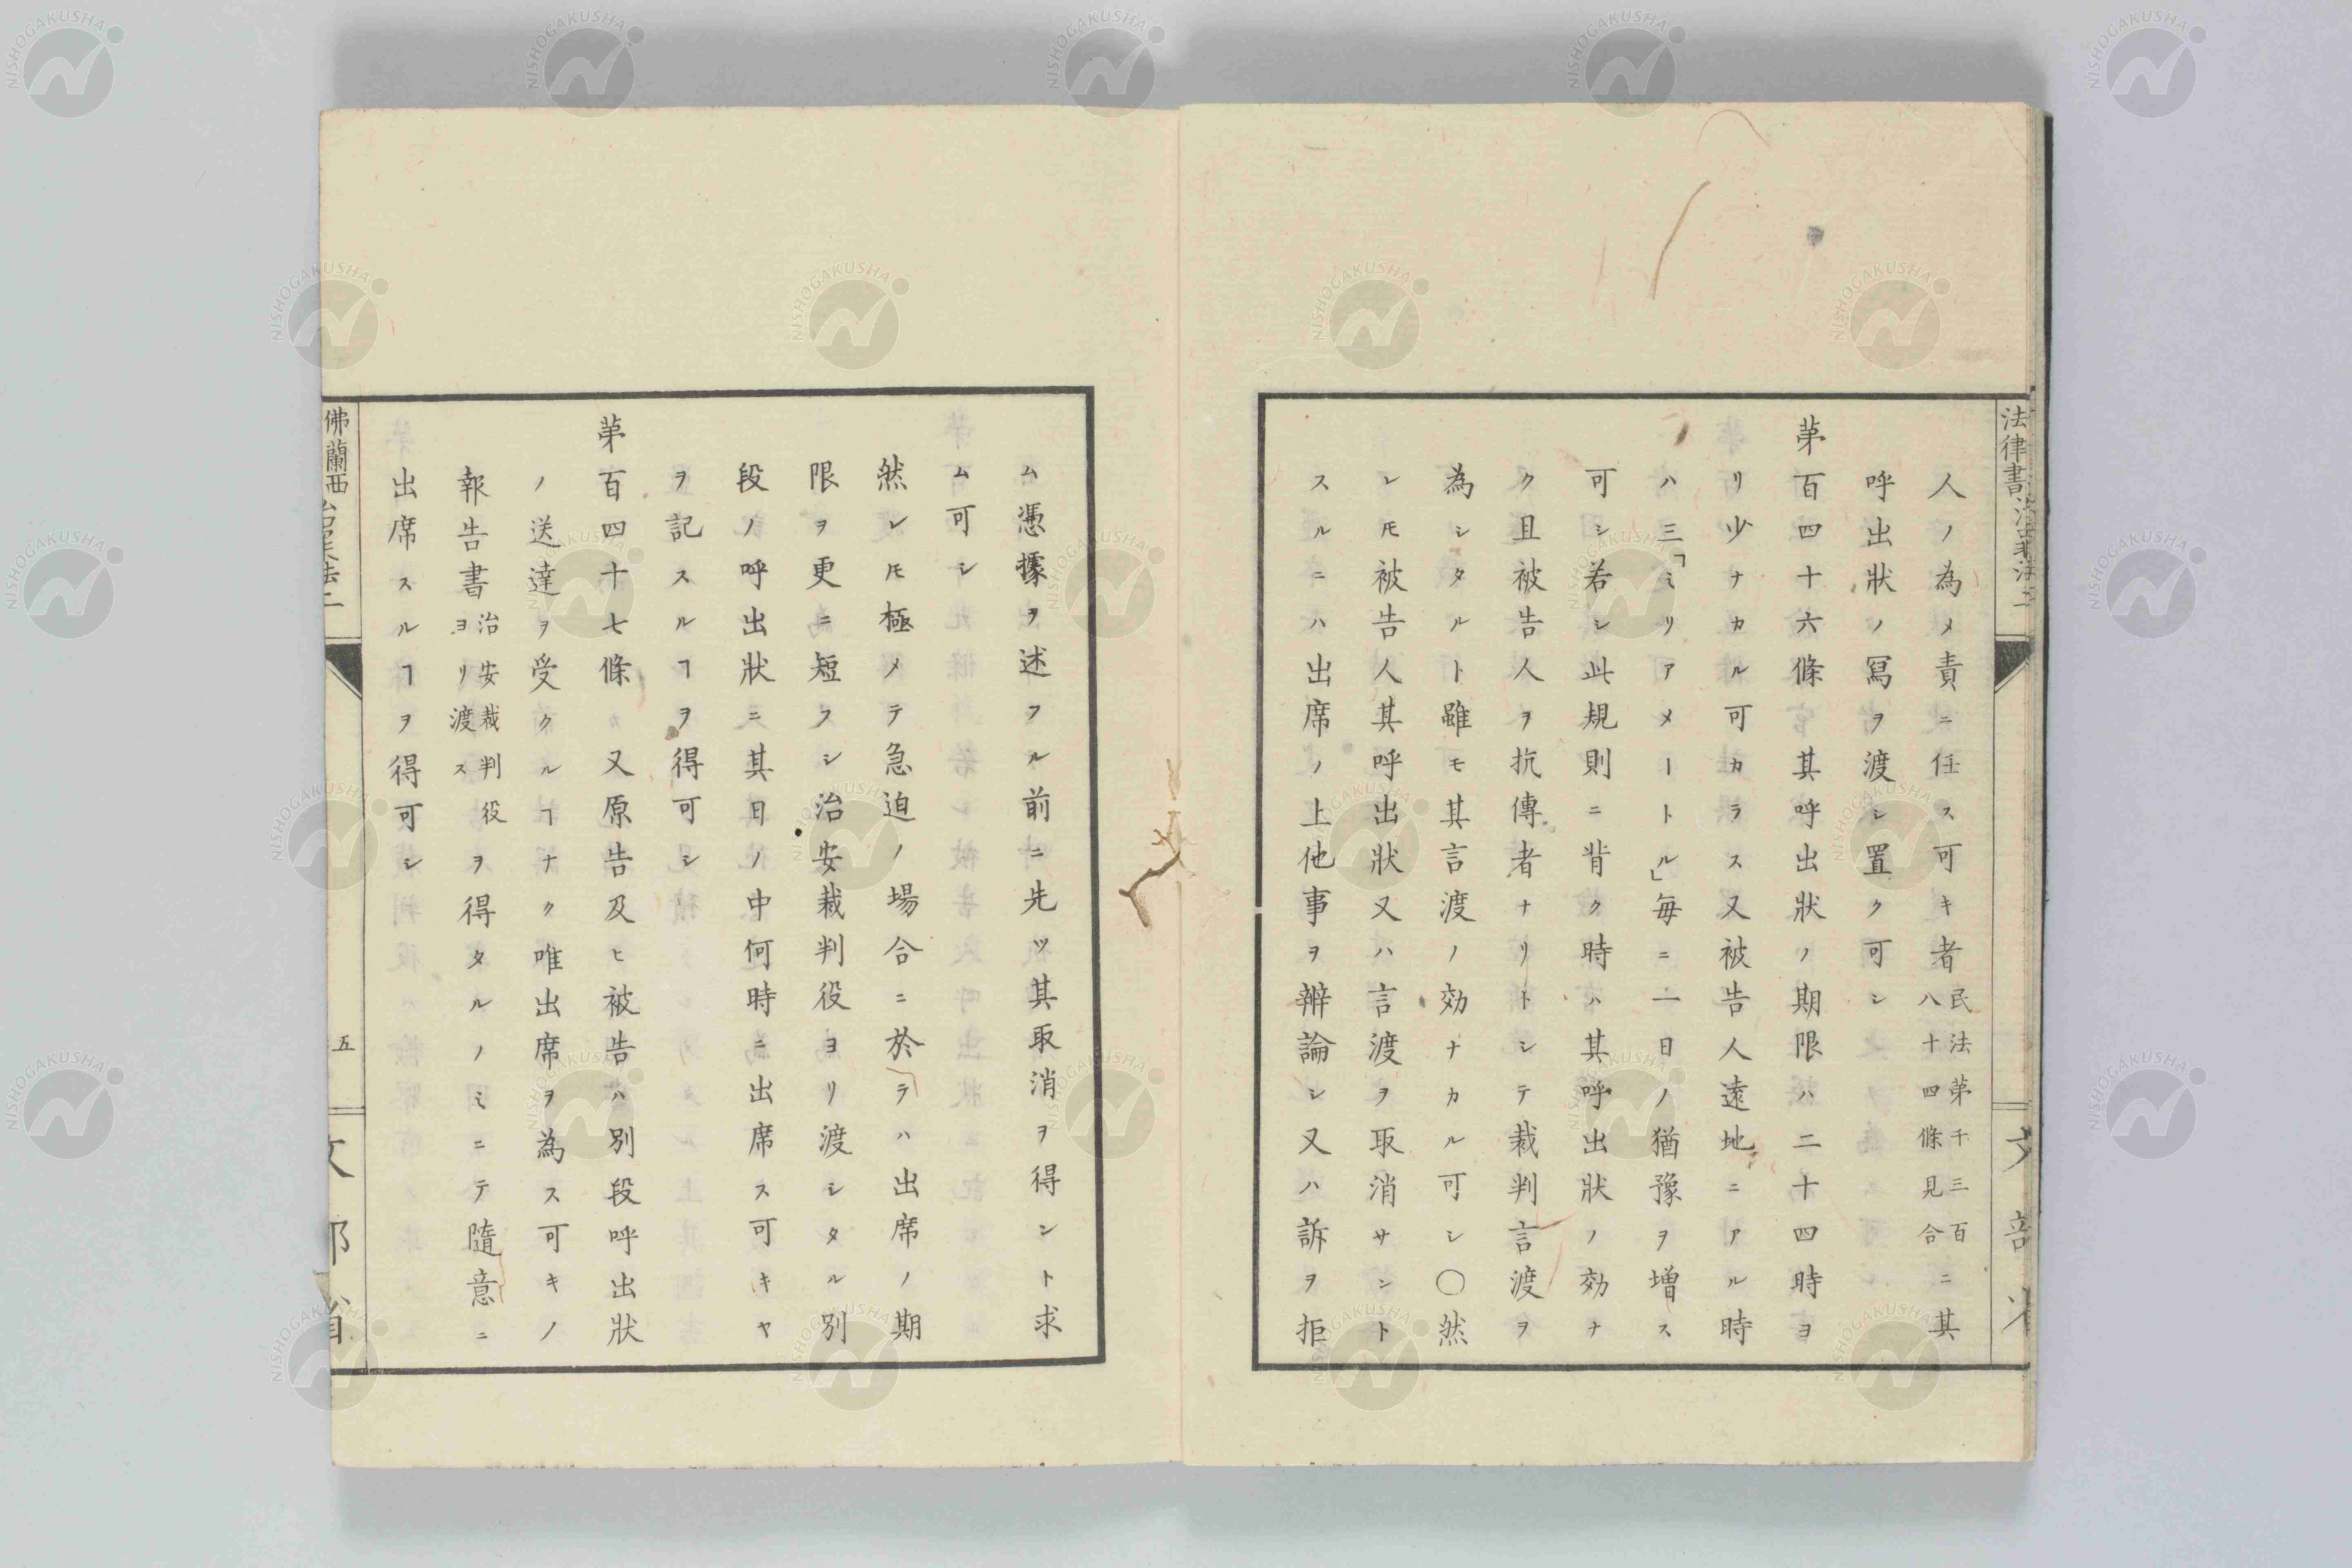 人ノ為メ責ニ任ス可キ者民法第千三百八十四條見合ニ其
呼出狀ノ冩ヲ渡シ置ク可シ
苐百四十六條其呼出狀ノ期限ハ二十四時ヨ
リ少ナカル可カラス又被告人遠地ニアル時
ハ三「ミリアメートル」毎ニ一日ノ猶豫ヲ增ス
可シ若シ此規則ニ背ク時ハ其呼出狀ノ効ナ
ク且被告人ヲ抗傳者ナリトシテ裁判言渡ヲ
為シタルト雖モ其言渡ノ効ナカル可シ〇然
レ𪜈被告人其呼出狀又ハ言渡ヲ取消サント
スルニハ出席ノ上他事ヲ辨論シ又ハ訴ヲ拒
ム憑據ヲ述フル前ニ先ツ其取消ヲ得ント求
ム可シ
然レ𪜈極メテ急迫ノ場合ニ於テハ出席ノ期
限ヲ更ニ短フシ治安裁判役ヨリ渡シタル別
段ノ呼出狀ニ其日ノ中何時ニ出席ス可キヤ
ヲ記スルヿヲ得可シ
苐百四十七條又原告及ヒ被告ハ別段呼出狀
ノ送達ヲ受クルヿナク唯出席ヲ為ス可キノ
報告書治安裁判役ヨリ渡スヲ得タルノミニテ隨意ニ
出席スルヿヲ得可シ
佛蘭西
五